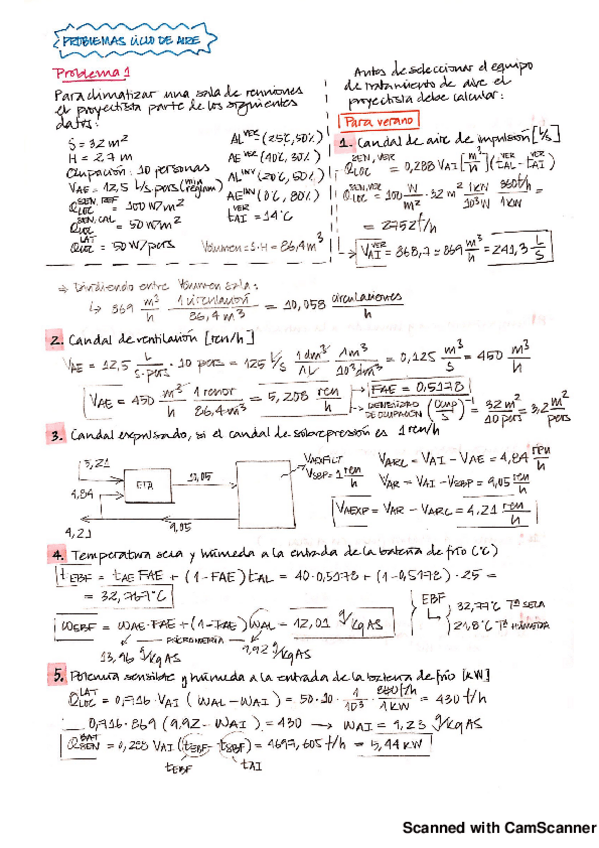 PROBLEMAS CICLO DE AIRE
Problema 1
Para climatizar una sala de reuniones
el proyectista parte de los siguientes
datos:
S = 32 m²
H = 2,7 m
Ocupación: 10 personas
V̇AE = 12,5 l/s·pers (mín región)
Q̇LOC SEN,REF = 100 W/m²
Q̇LOC SEN,CAL = 50 W/m²
Q̇LOC LAT = 50 W/pers
AL VER (25°C, 50%)
AE VER (40°C, 30%)
AL INV (20°C, 50%)
AE INV (0°C, 80%)
tAI VER = 14°C
Volumen = S·H = 86,4 m³
Antes de seleccionar el equipo
de tratamiento de aire el
proyectista debe calcular:
Para verano
1. Caudal de aire de impulsión [l/s]
Q̇LOC SEN,VER = 0,288 V̇AI [m³/h] (tAL VER − tAI VER)
Q̇LOC SEN,VER = 100 W/m² · 32 m² 1KW/10³W 860f/h/1KW =
= 2752 f/h
↳ V̇AI VER = 868,7 ≈ 869 m³/h = 241,3 l/s
⇒ Dividiendo entre Volumen sala:
↳ 869 m³/h 1 circulación/86,4 m³ = 10,058 circulaciones/h
2. Caudal de ventilación [ren/h]
V̇AE = 12,5 l/s·pers · 10 pers = 125 l/s 1dm³/1l 1m³/10³dm³ = 0,125 m³/s = 450 m³/h
V̇AE = 450 m³/h 1 renov/86,4 m³ = 5,208 ren/h
→ FAE = 0,5178
→ DENSIDAD DE OCUPACIÓN (ocup/S)⁻¹ = 32 m²/10 pers = 3,2 m²/pers
3. Caudal expulsado, si el caudal de sobrepresión es 1 ren/h
5,21
4,84
4,21
ETA
10,05
9,05
VAEXFILT
VSBP = 1 ren/h
V̇ARC = V̇AI − V̇AE = 4,84 ren/h
V̇AR = V̇AI − V̇SBP = 9,05 ren/h
V̇AEXP = V̇AR − V̇ARC = 4,21 ren/h
4. Temperatura seca y húmeda a la entrada de la batería de frío (°C)
tEBF = tAE FAE + (1−FAE) tAL = 40·0,5178 + (1−0,5178)·25 =
= 32,767°C
ωEBF = ωAE·FAE + (1−FAE) ωAL = 12,01 g/KgAS
PSICROMETRÍA
13,96 g/KgAS
9,92 g/KgAS
EBF
32,77°C Tª SECA
21,8°C Tª HÚMEDA
5. Potencia sensible y húmeda a la entrada de la batería de frío [KW]
Q̇LOC LAT = 0,716·V̇AI (ωAL − ωAI) = 50·10· 1/10³ · 860f/h/1KW = 430 f/h
0,716·869 (9,92 − ωAI) = 430 → ωAI = 9,23 g/KgAS
Q̇SEN BAT = 0,288 V̇AI (tEBF − tSBF) = 4697,605 f/h = 5,44 KW
tEBF
tAI
Scanned with CamScanner